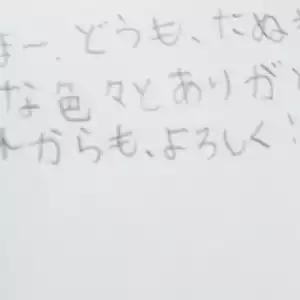 まー、どうも、たぬき
な色々とありがと
れからも、よろしく!